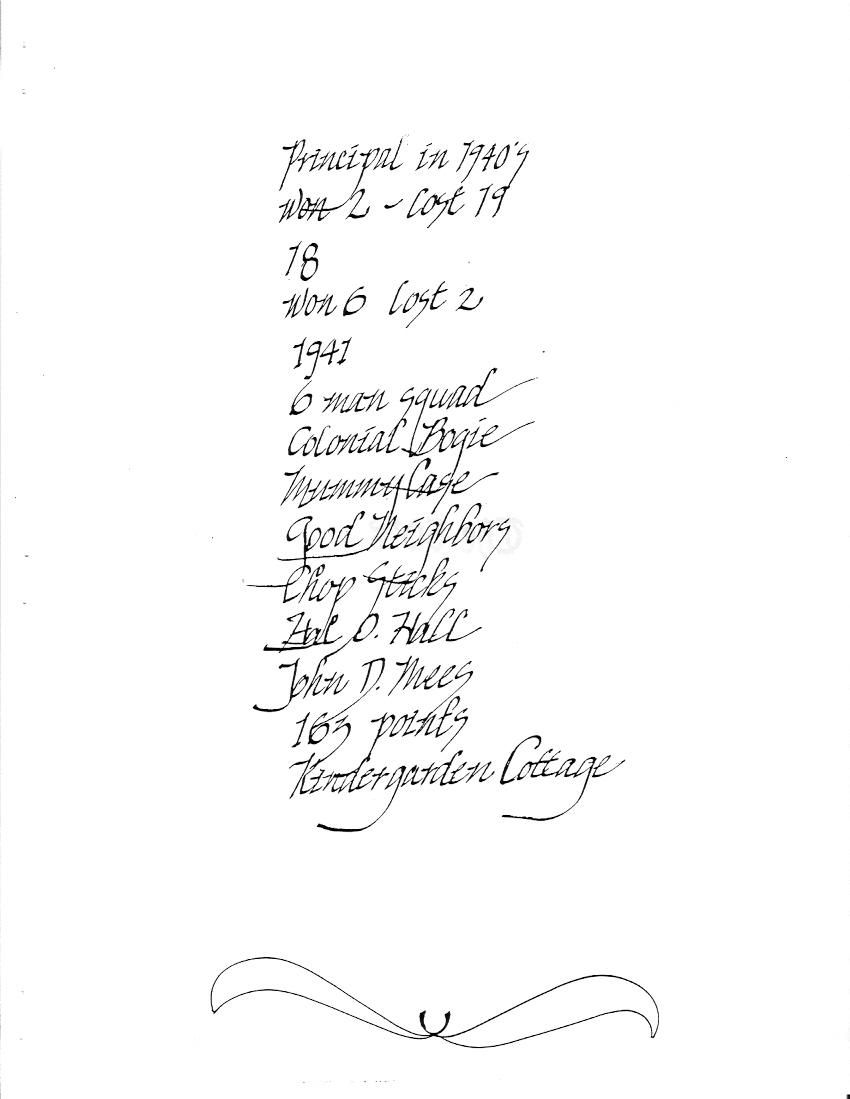 Principal in 1940's
Won 2 - Lost 19
18
Won 6 Lost 2
1941
6 man squad
Colonial Bogie
Mummy Case
Good Neighbors
Chop Sticks
Hal O. Hall
John D. Mees
163 points
Kindergarden Cottage